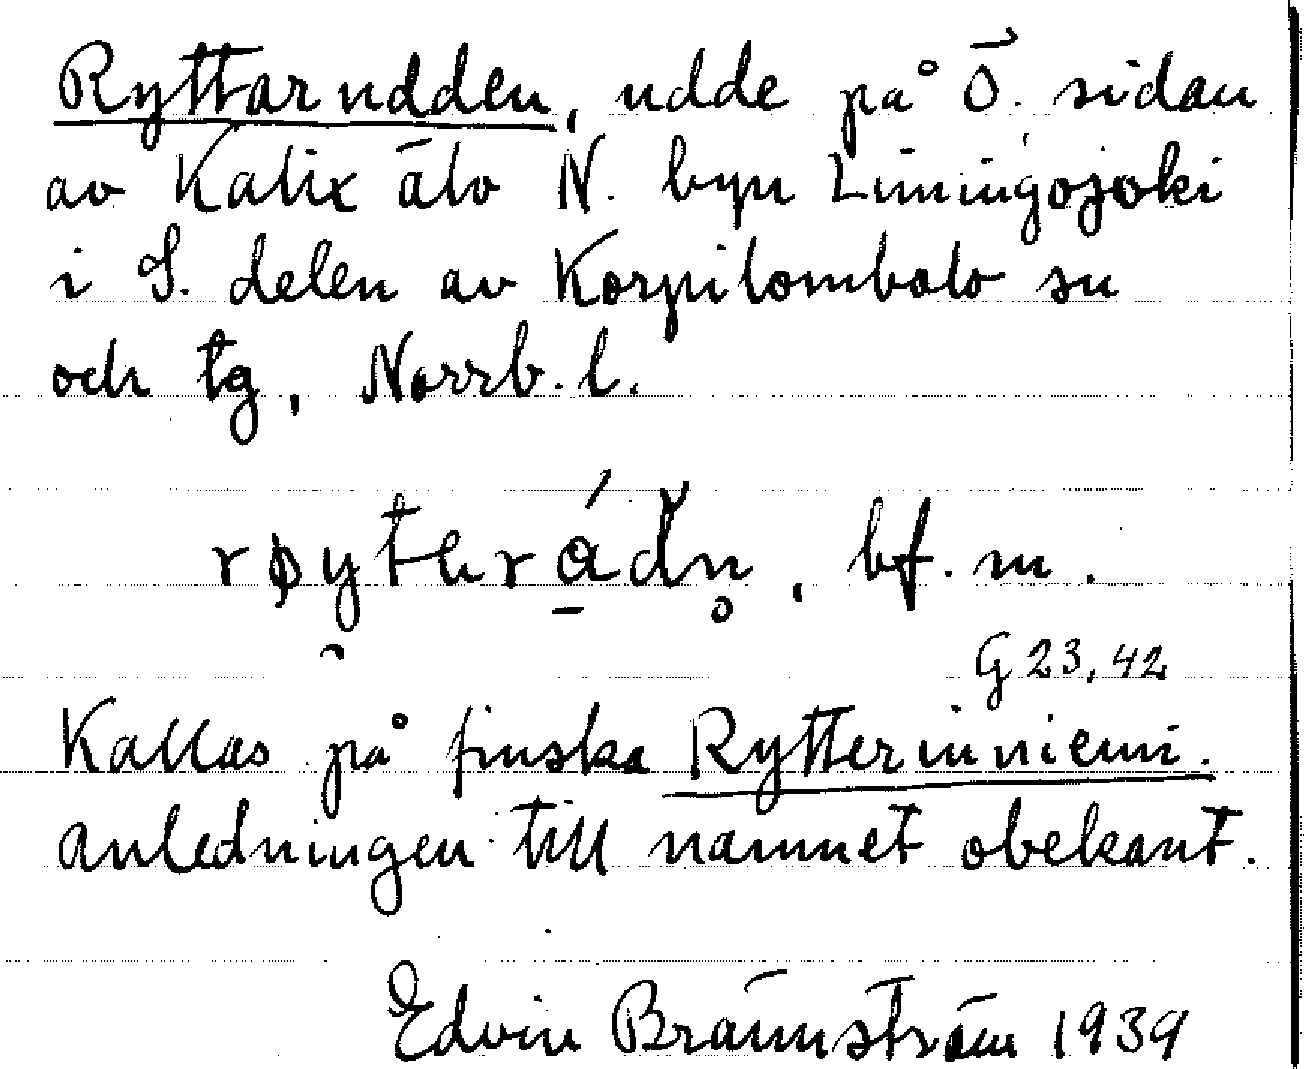 Ryttarudden, udde på Ö. sidan
av Kalix älv N. byn Liminģojoki
i S. delen av Korpilombolo sn
och tg, Norrb. l.
bf. m.
G 23,42
Kallas på finska Rytterinniemi.
Anledningen till namnet obekant.
Edvin Brännström 1939